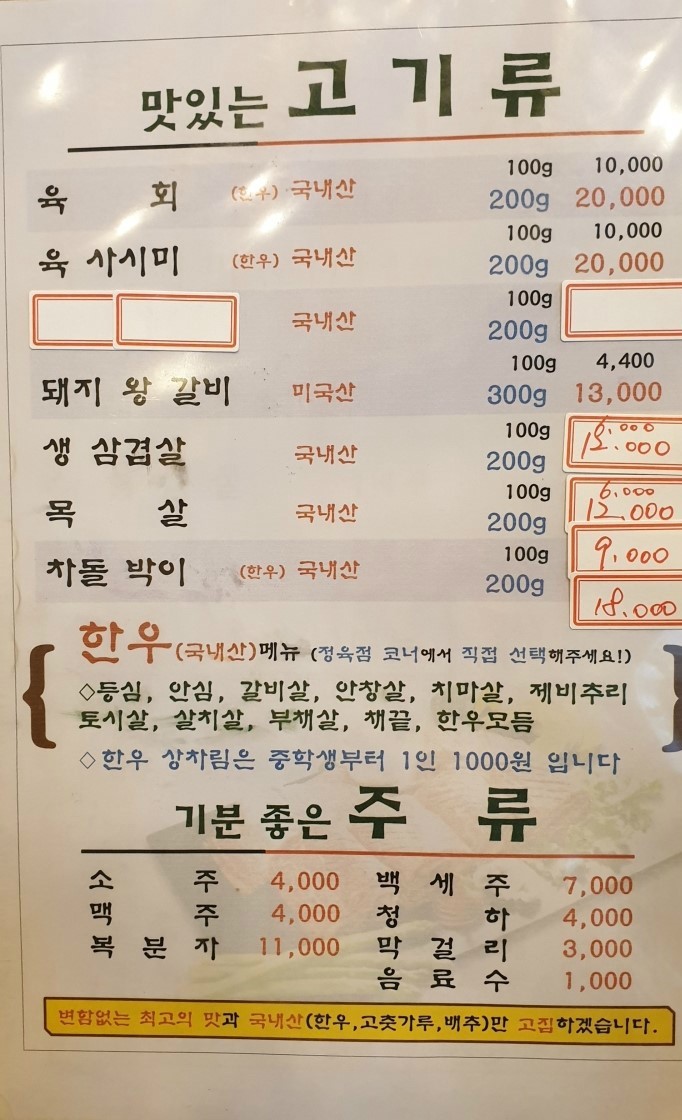 맛있는 고기류
100g 10,000
육 회 (한우) 국내산 200g 20,000
100g 10,000
육 사시미 (한우) 국내산 200g 20,000
100g
국내산 200g
100g 4,400
돼지 왕 갈비 미국산 300g 13,000
100g 6.000
생 삼겹살 국내산 200g 12.000
100g 6.000
목 살 국내산 200g 12.000
100g 9.000
차돌 박이 (한우) 국내산 200g 18.000
한우(국내산)메뉴 (정육점 코너에서 직접 선택해주세요!)
◇등심, 안심, 갈비살, 안창살, 치마살, 제비추리
토시살, 살치살, 부채살, 채끝, 한우모듬
◇한우 상차림은 중학생부터 1인 1000원 입니다
기분 좋은 주 류
소 주 4,000 백 세 주 7,000
맥 주 4,000 청 하 4,000
복 분 자 11,000 막 걸 리 3,000
음 료 수 1,000
변함없는 최고의 맛과 국내산(한우,고춧가루,배추)만 고집하겠습니다.